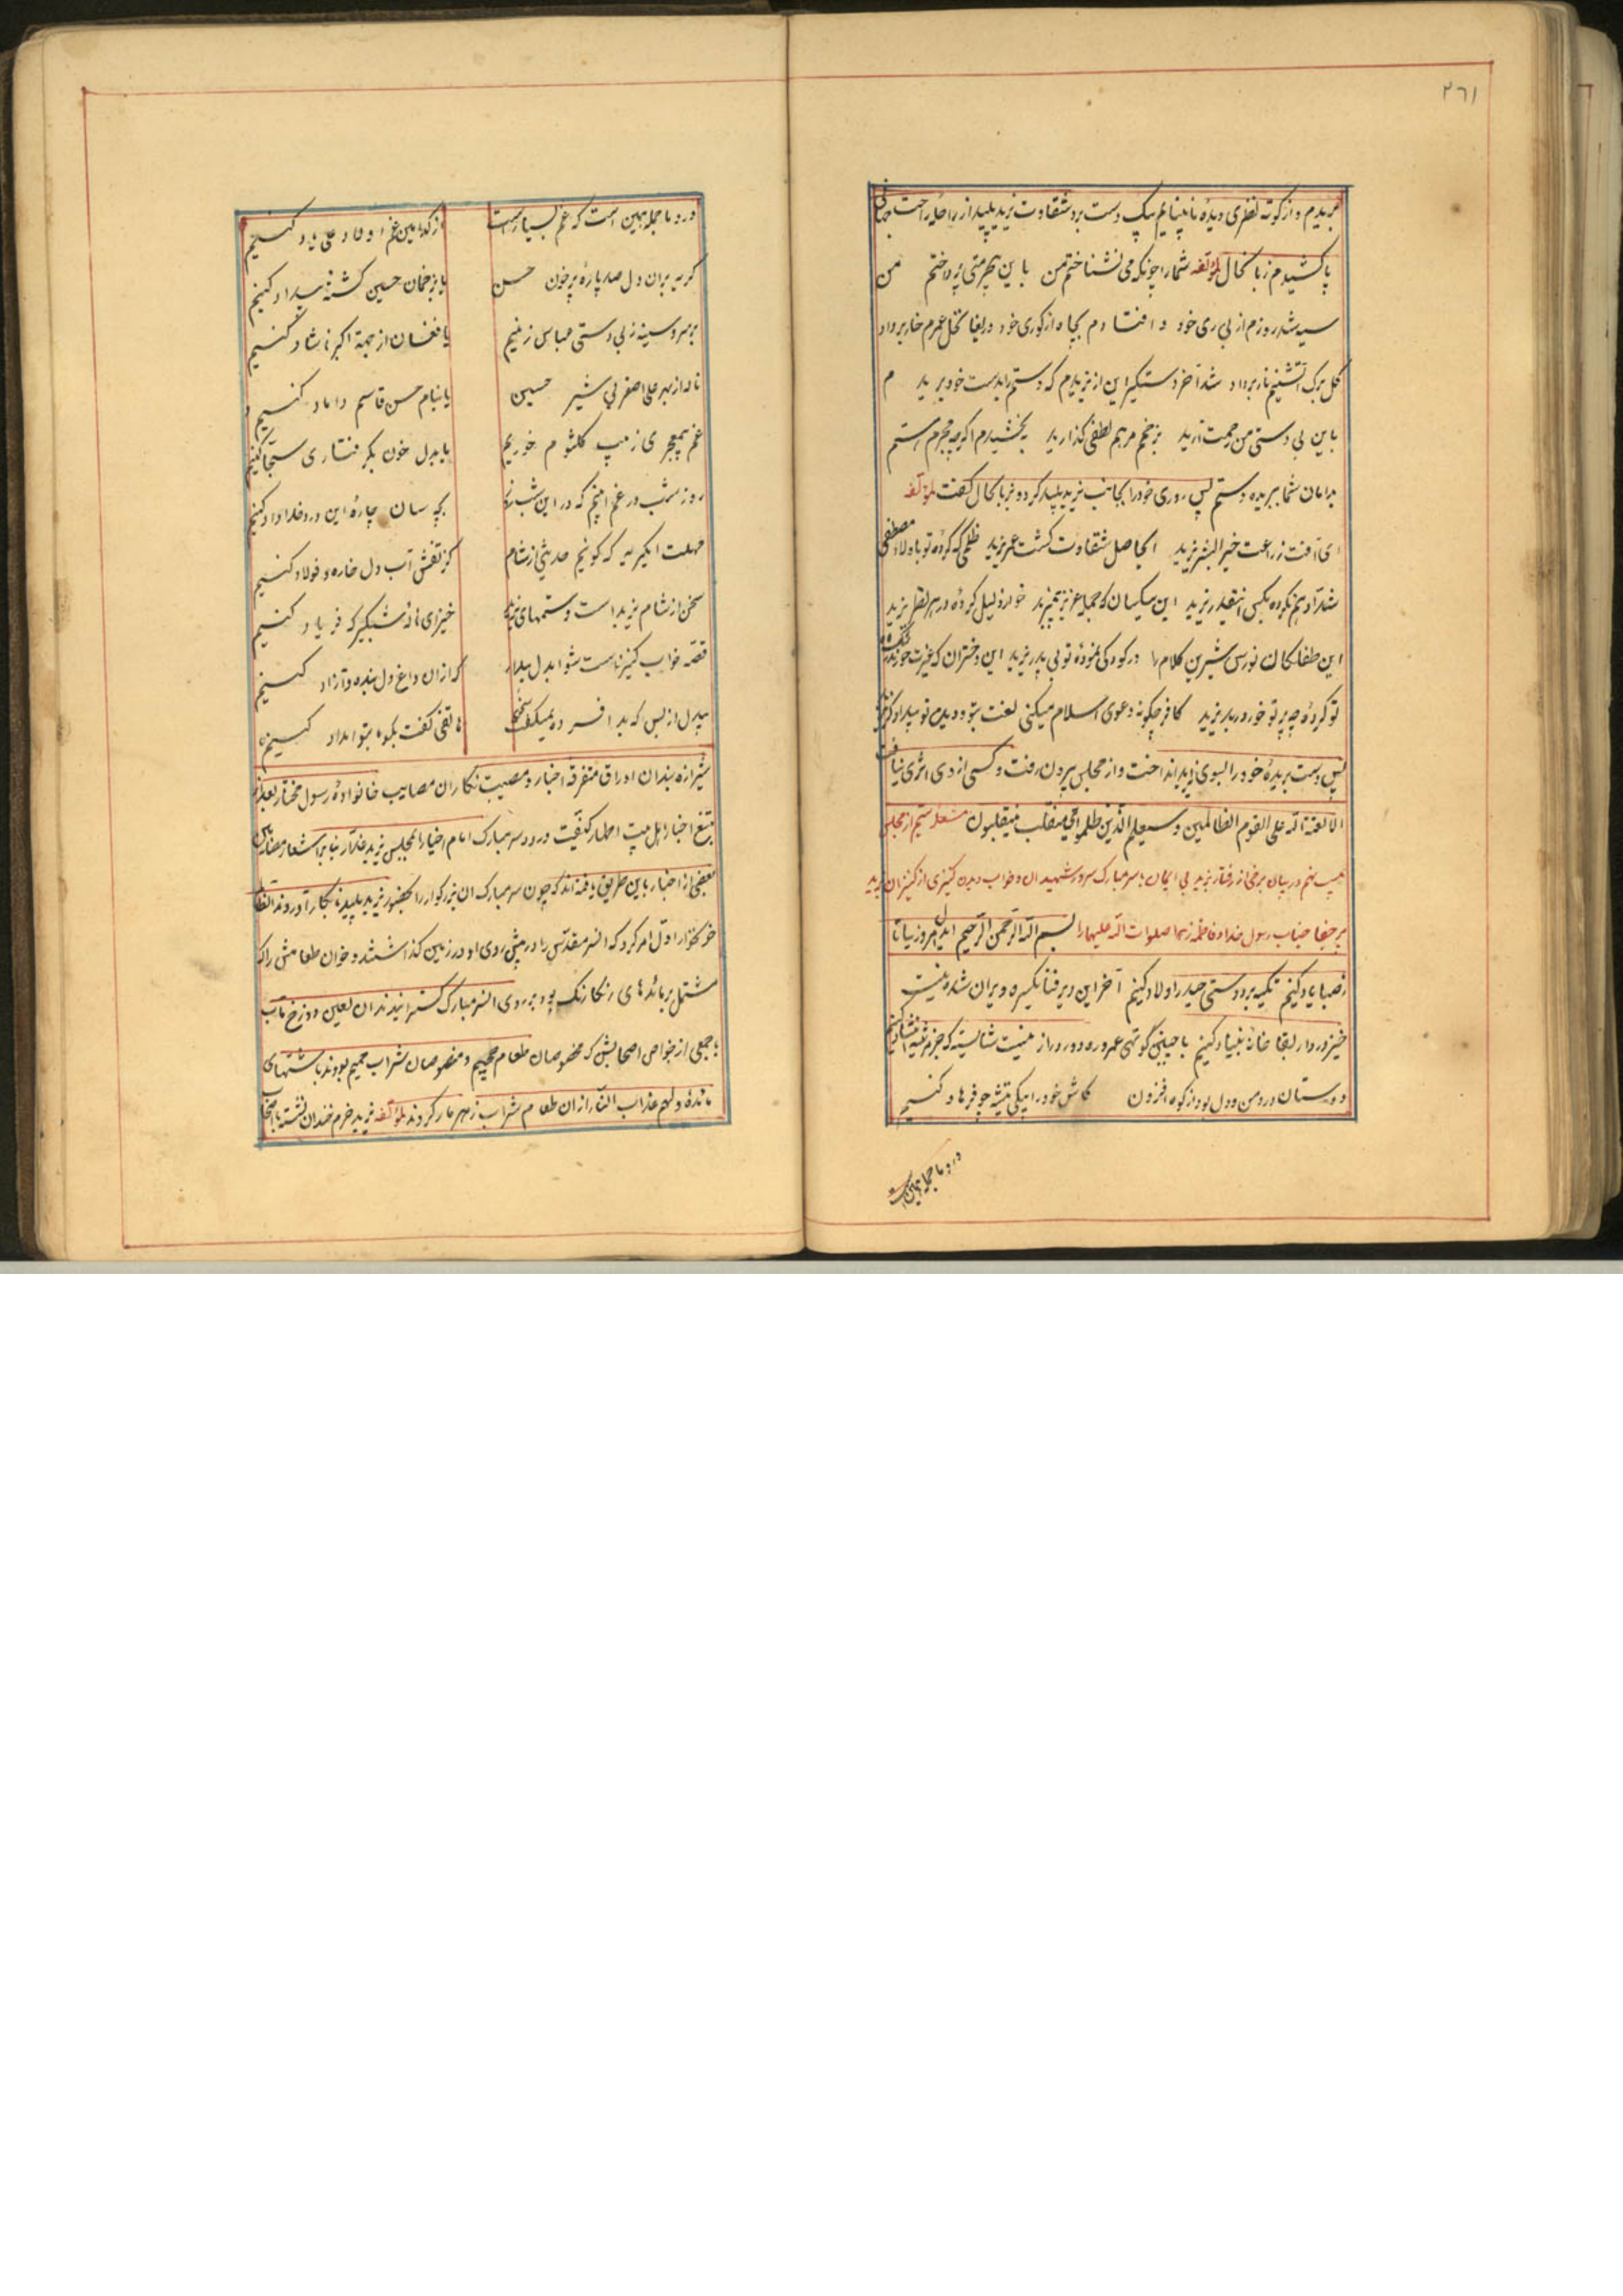 ۲۶۱
بریدم و از کوته نظری دیدهٔ نابینایم یک دست برد شقاوت یزید پلید از مراحل راحت جهانی
پا کشیدم زبانحال لمؤلفه شما را چونکه می نشناختم من با این بیحرمتی پرداختم من
سیه شد روزم از بی ری خود و افتادم بچاه از کوری خود دریغا نخل عمرم خار بر داد
گل برک آتشینم نار بر داد شد آخر دستگیر این از یزیدم که دستم را بدست خود بریدم
باین بی دستی من رحمت آرید بزخمم مرهم لطفی گذارید ببخشیدم اگرچه مجرم استم
بدامان شما ببریده دستم پس روی خود را بجانب یزید پلید کرد و بزبانحال گفت لمؤلفه
ای آفت زراعت خیر البشر یزید ایحاصل شقاوت کشت عمر یزید ظلمی که کردهٔ تو باولاد مصطفی
شداد هم نکرده بکس اینقدر یزید این بیکسان که جمله عزیز پیمبرند خوار و ذلیل کردهٔ در هر نظر یزید
این طفلکان نورس شیرین کلام را در کودکی نمودهٔ تو بی پدر یزید این دختران که غیرت حورند
تو کردهٔ چه پرتو خور دربدر یزید کافر چگونه دعوی اسلام میکنی لعنت بتو و دین تو بیدادگر یزید
پس دست بریدهٔ خود را بسوی یزید انداخت و از مجلس بیرون رفت و کسی از وی اثری نیافت
الا لعنة الله علی القوم الظالمین و سیعلم الذین ظلموا ای منقلب ینقلبون مشعله ستم از مجلس
بیست نهم در بیان برخی از رفتار یزید بی ایمان با سر مبارک سرور شهیدان و خواب دیدن کنیزی از کنیزان یزید
بر جفا جناب رسول خدا و فاطمه زهرا صلوات الله علیها را بسم الله الرحمن الرحیم ایدل امروز بیا تا
رضا یاد کنیم تکیه بر دوستی حیدر و اولاد کنیم آخر این دیر فنا یکسره ویران شدنیست
خیز در دار بقا خانهٔ بنیاد کنیم با چنین کوتهی عمر و ره دور و دراز نیست شایسته که جز مرثیه انشاد کنیم
دوستان درد من و دل بود از کوه افزون کاش خود را بیکی تیشه چو فرهاد کنیم
درد ما جمله همین است
درد ما جمله همین است که غم بسیار است از کدامین غم اولاد علی یاد کنیم
گریه بر آن دل صد پارهٔ پرخون حسن یا بزخمان حسین کشتهٔ بیداد کنیم
بر سر و سینه ز بی دستی عباس زنیم یا فغان از جهة اکبر ناشاد کنیم
ناله از بهر علی اصغر بی شیر حسین یا بنام حسن قاسم داماد کنیم
غم بی معجری زینب کلثوم خوریم یا بدل خون بگرفتاری سجاد کنیم
روز شب در غم اینم که در این شب بچه سان چارهٔ این درد خداداد کنیم
مهلت ایگریه که گوئیم حدیثی از شام کز تفش آب دل خاره و فولاد کنیم
سخن از شام یزید است و ستمهای یزید خیز ای نالهٔ شبگیر که فریاد کنیم
قصه خواب کنیز است شنو ایدل بیدار که از آن داغ دل بنده و آزاد کنیم
بیدل از بس که بد افسرده نمیگفت سخن هاتفی گفت بگو ما بتو امداد کنیم
شیرازه بندان اوراق متفرقه اخبار و مصیبت نگاران مصایب خانوادهٔ رسول مختار بعد از
تتبع اخبار اهل بیت اطهار کیفیت ورود سر مبارک امام اخیار بمجلس یزید غدار بنا بر اشعار مضامین
بعضی از اخبار باین طریق یافته اند که چون سر مبارک آن بزرگوار را بحضور یزید پلید نابکار آوردند آنظالم
خونخوار اول امر کرد که آنسر مقدس را در پیش روی او در زمین گذاشتند و خوان طعامش را که
مشتمل بر مائدهای رنگارنگ بود بر روی آنسر مبارک گسترانیدند آن لعین دوزخ مآب
با جمعی از خواص اصحابش که مخصوصان طعام جحیم و منصوصان شراب حمیم بودند باشتهای
مائدهٔ و لهم عذاب النار از آن طعام شراب زهر مار کردند لمؤلفه یزید خرم خندان نشسته با اصحاب